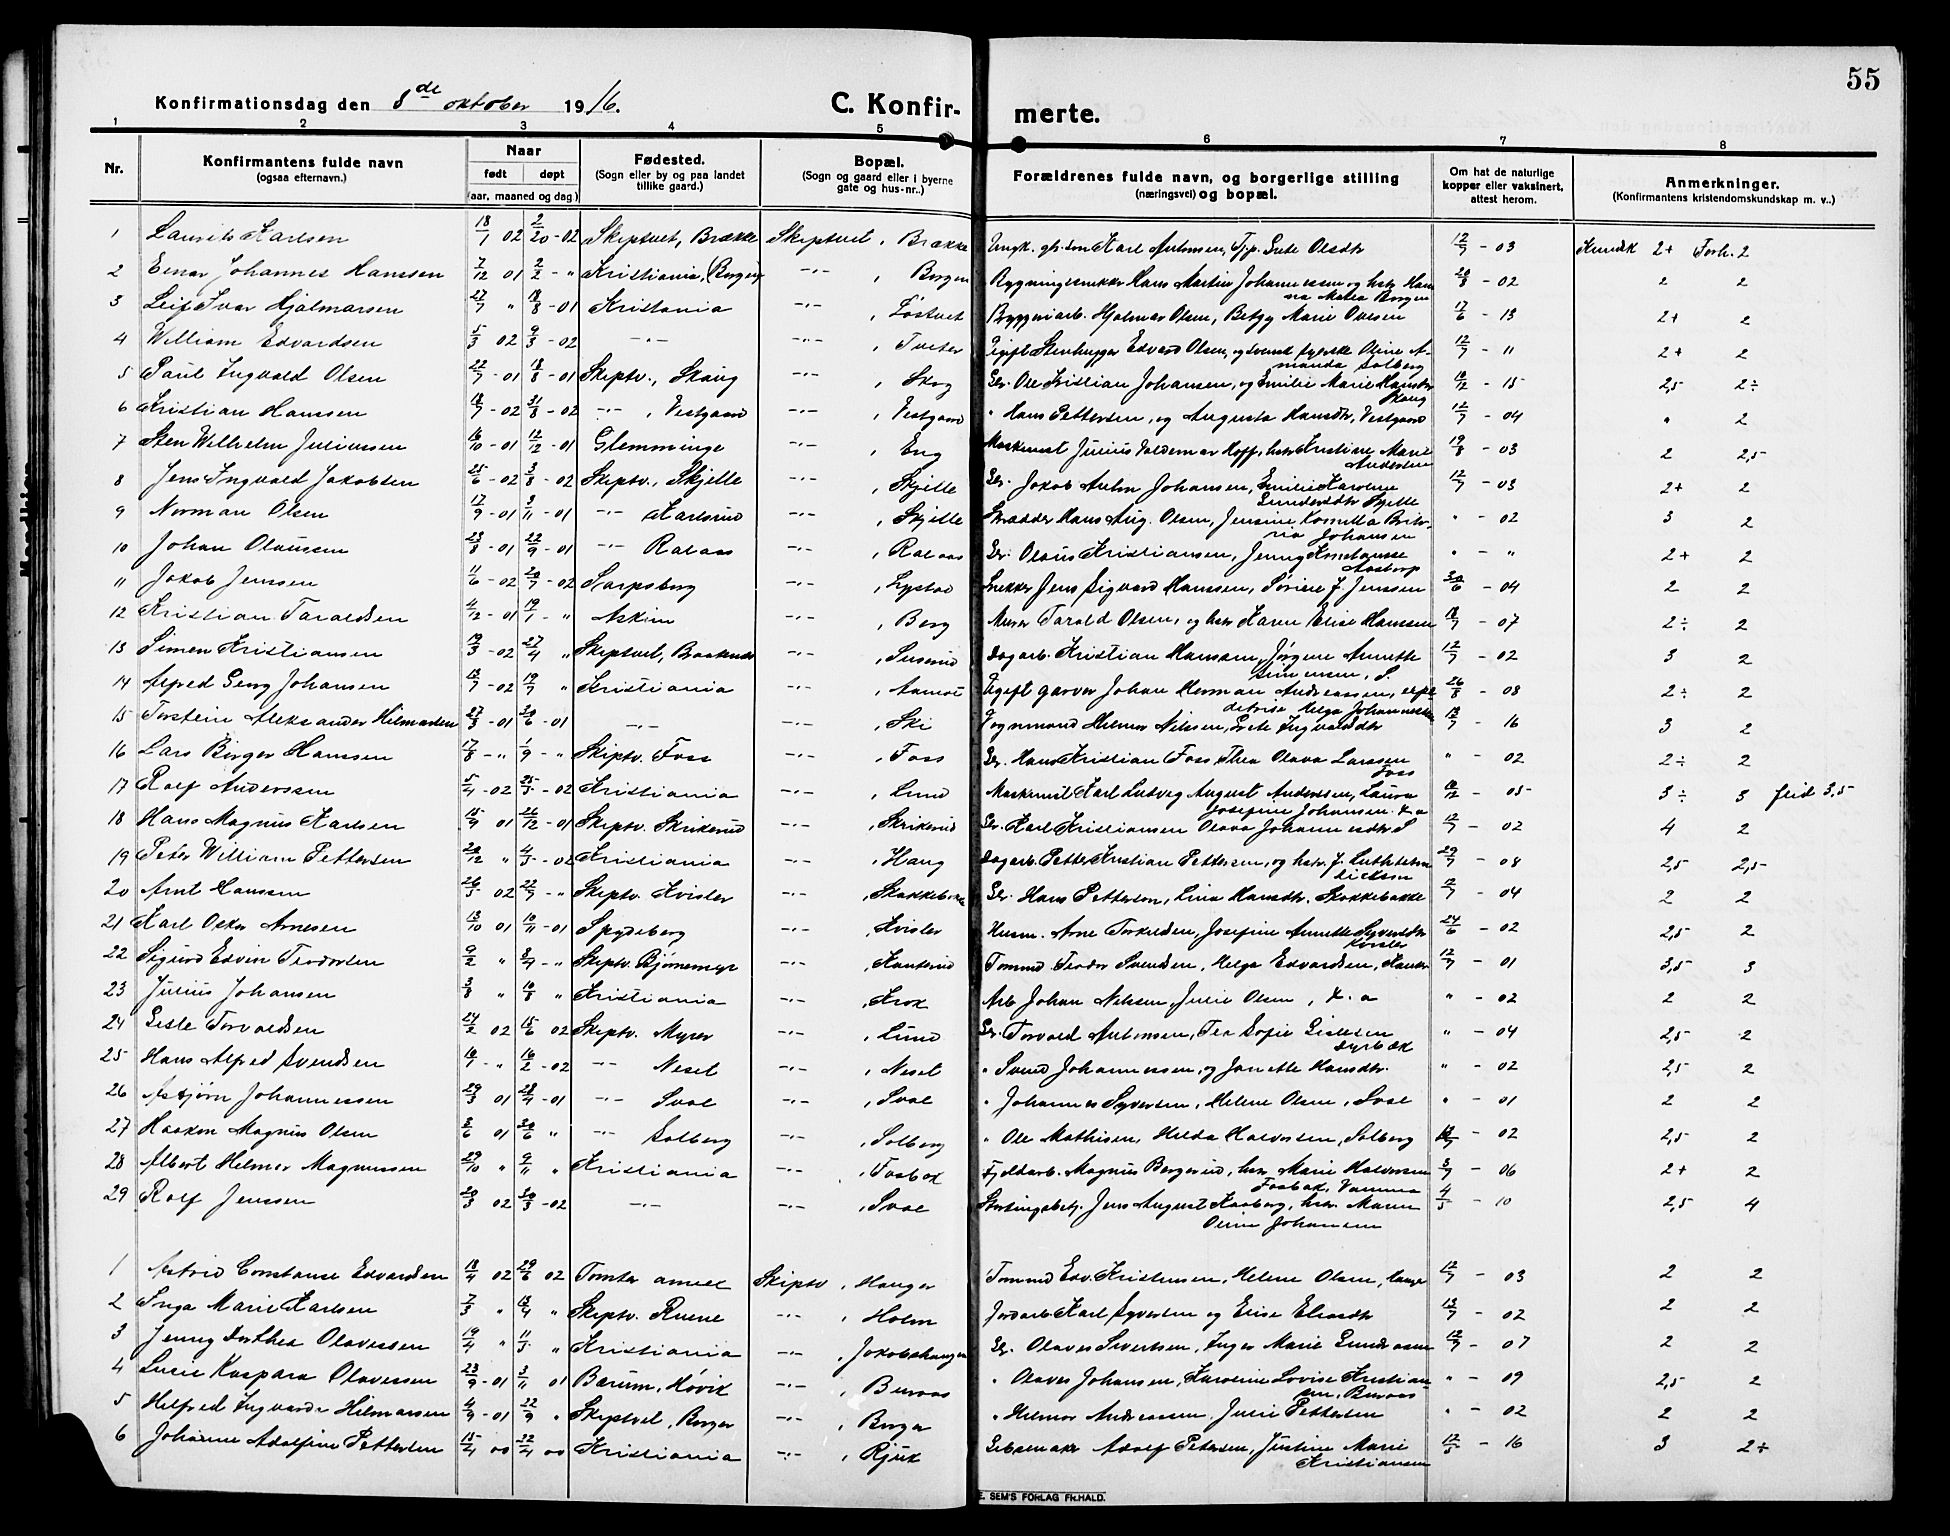 55
Konfirmationsdag den 8de oktober 1916.
C. Konfirmerte.
1 2 3 4 5 6 7 8
Nr.
Konfirmantens fulde navn
(ogsaa efternavn.)
Naar
født døpt
(aar, maaned og dag)
Fødested.
(Sogn eller by og paa landet tillike gaard.)
Bopæl.
(Sogn og gaard eller i byerne gate og hus-nr..)
Forældrenes fulde navn, og borgerlige stilling
(næringsvei) og bopæl.
Om hat de naturlige kopper eller vaksinert, attest herom.
Anmerkninger.
(Konfirmantens kristendomskundskap m. v..)
1 Laurits Karlsen 18/7 02 2/20-02 Skiptvet, Brække Skiptvet, Brække Ungk. Karl Antonsen, Tj.p. Grete Olsdtr 12/7 - 03 Kundsk 2+ Forh. 2
2 Einar Johannes Hanssen 7/12 01 2/2 - " Kristiania, (Borgen) -"- , Borgen Bygningssnekker Hans Martin Johannessen og hstr Hanna Matea Borgen 20/8 - 02 2 2
3 Leif Ivar Hjalmarsen 27/7 " 18/8 - 01 Kristiania -"- , Løstvet Byggeriarb. Hjalmar Olsen, Betzy Marie Ovesen 17/6 - 13 2+ 2
4 William Edvardsen 5/3 02 9/3 - 02 -"- -"- , Tveter Ugift Stenhugger Edvard Olsen, og svensk Oline Amanda Solberg 12/7 - 11 2+ 2
5 Paul Ingvald Olsen 22/7 - 01 18/8 - 01 Skiptv., Skaug -"- , Skog Gbr. Ole Kristian Johansen, og Emilie Marie Hansdtr Skaug 18/12 - 15 2,5 2÷
6 Kristian Hanssen 18/7 - 02 31/8 - 02 -"- , Vestgaard -"- , Vestgaard " Hans Pettersen, og Augusta Hansdtr, Vestgaard 12/7 - 04 " 2
7 Sten Wilhelm Juliussen 16/10 - 01 12/12 - 01 Glemminge -"- , Eng Maskinist Julius Valdemar Hoff, hstr Kristine Marie Andersen 19/8 - 03 2 2,5
8 Jens Ingvald Jakobsen 25/6 - 02 3/8 - 02 Skiptv., Skjelle -"- , Skjelle Gbr. Jakob Anton Johansen, Emilie Karoline Gundersdtr Skjelle 12/7 - 03 2+ 2
9 Norman Olsen 17/9 - 01 3/11 - 01 -"- Karlsrud -"- , Skjelle Skrædder Hans Aug. Olsen, Jensine Kornelia Johansen " - 02 3 2
10 Johan Olaussen 23/8 - 01 22/9 - 01 -"- Raaas -"- , Raaas Gbr. Olaus Kristiansen, Jenny Konstanse Aastorp " - " 2+ 2
11 Jakob Jenssen 11/6 - 02 20/7 - 02 Sarpsborg -"- , Lystad Snekker Jens Sigvard Hanssen, Sørine J Jenssen 30/6 - 04 2 2
12 Kristian Taraldsen 4/12 - 01 19/1 - " Askim -"- , Berg Murer Tarald Olsen, og hstr Karen Elise Hanssen 18/7 - 07 2÷ 2
13 Simen Kristiansen 19/3 - 02 27/4 " Skiptvet, -"- , Susrud Dagarb. Kristian Hansen, Jørgine Annette Simensen, S. 12/7 - 02 3 2
14 Alfred Georg Johansen 18/7 - 02 19/7 " Kristiania -"- , Aamot Ugift garver Johan Herman Andreassen, Helga Johannesen 26/8 - 08 2÷ 2
15 Torstein Aleksander Hilmarsen 27/3 - 01 30/6 - 01 -"- -"- , Ski Vognmand Helmer Nilsen, Grete Ingvaldsdtr 18/7 - 16 3 2
16 Lars Birger Hanssen 17/8 - " 1/9 - " Skiptv. Foss -"- , Foss Gbr. Hans Kristian Foss, Thea Olava Larssen Foss " - 02 2÷ 2
17 Rolf Anderssen 5/4 - 02 25/5 - 02 Kristiania -"- , Lund Maskinist Karl Ludvig August Anderssen, Laura Josefine Johansen. Kr.a 18/12 - 05 3÷ 3 flid 3,5
18 Hans Magnus Karlsen 15/9 01 26/12 - 01 Skiptv. Skrikerud -"- , Skrikerud Gbr. Karl Kristiansen Olava Johannesdtr S 12/7 - 02 4 2
19 Peter William Pettersen 20/12 " 4/5 - 02 Kristiania -"- , Haug Dagarb. Petter Kristian Pettersen, og hstr. J. 29/7 - 08 2,5 2,5
20 Arnt Hanssen 26/5 02 22/7 - " Skiptv. Kvisler -"- , Skokkebakke Gbr. Hans Petterson, Lina Hansdtr. Skokkebakke 12/7 - 04 2 2
21 Karl Oskar Arnesen 13/10 01 10/11 - 01 Spydeberg -"- , Kvisler Husm. Arne Torkildsen, Josefine Annette Syversdtr Kvisler 24/6 - 02 2,5 2
22 Sigurd Edvin Teodorsen 9/2 " 8/4 - " Skiptv. Bjørnemyr -"- , Kanterud Tømmd. Teodor Svendsen, Helga Edvardsen, 12/7 - 01 3,5 3
23 Julius Johansen 3/8 " 18/8 " Kristiania -"- , Krok Arb Johan Nilsen, Julie Olsen, K.a " - 02 2 2
24 Gisle Torvaldsen 24/2 02 15/6 02 Skiptv. Myrer -"- , Lund Gbr. Torvald Antonsen, Tea Sofie Gislesen Dyrbæk " - 04 2,5 2
25 Hans Alfred Svendsen 16/7 - " 16/2 - 02 -"- Neset -"- , Neset " Svend Johannessen, og Janette Hansdtr. " - 02 2,5 2
26 Asbjørn Johannessen 29/3 01 28/4 - 01 -"- Svae -"- , Svae " Johannes Syversen, Helene Olsen, Svae " - 01 2 2
27 Haakon Magnus Olsen 3/6 01 30/6 " -"- Solberg -"- , Solberg " Ole Mathisen, Hilda Halversen, Solberg 12/7 - 02 2,5 2
28 Albert Helmer Magnussen 29/10 " 9/11 " Kristiania -"- , Fosbæk Fjeldarb. Magnus Bergerud, hstr. Marie Halversen Fosbæk, Vamma 3/7 - 06 2+ 2
29 Rolf Jenssen 20/3 02 30/3 - 02 -"- -"- , Svae Stortingsbetj. Jens August Kaaberg, hstr. Maren Oline Johansen 4/5 - 10 2,5 4
1 Astrid Constanse Edvardsen 18/4 02 29/6 02 Tomter Skiptv , Hauger Tømmd Edv. Kristensen, Helene Olsen, 12/7 - 03 2 2
2 Inga Marie Karlsen 7/3 " 13/4 " Skiptv. Ruene -"- , Holm Jordarb Karl Syversen og Elise Eliasdtr 13/7 - 02 2 2
3 Jenny Dorthea Olavessen 19/4 " 11/5 " Kristiania -"- , Jakobshaugen Gbr. Olaves Sivertsen, Inger Marie Gundersen 12/7 - 07 2 2
4 Lucie Kaspara Olavessen 23/9 - 01 3/11 01 Bærum, Høvik -"- , Buraas " Olaves Johansen, Karoline Lovise Kristiansen, Buraas " - 09 2,5 2
5 Hilfred Ingvarda Hilmarsen 4/9 - 01 22/9 " Skiptvet, Borger -"- , Borger " Helmer Andreassen, Julie Pettersen " - 02 2 2
6 Johanne Adolfine Pettersen 15/4 00 22/4 00 Kristiania -"- , Rjuk Adolf Petersen, Justine Marie Kristiansen 12/5 - 16 3 2+
E. SEM'S FORLAG FR.HALD.